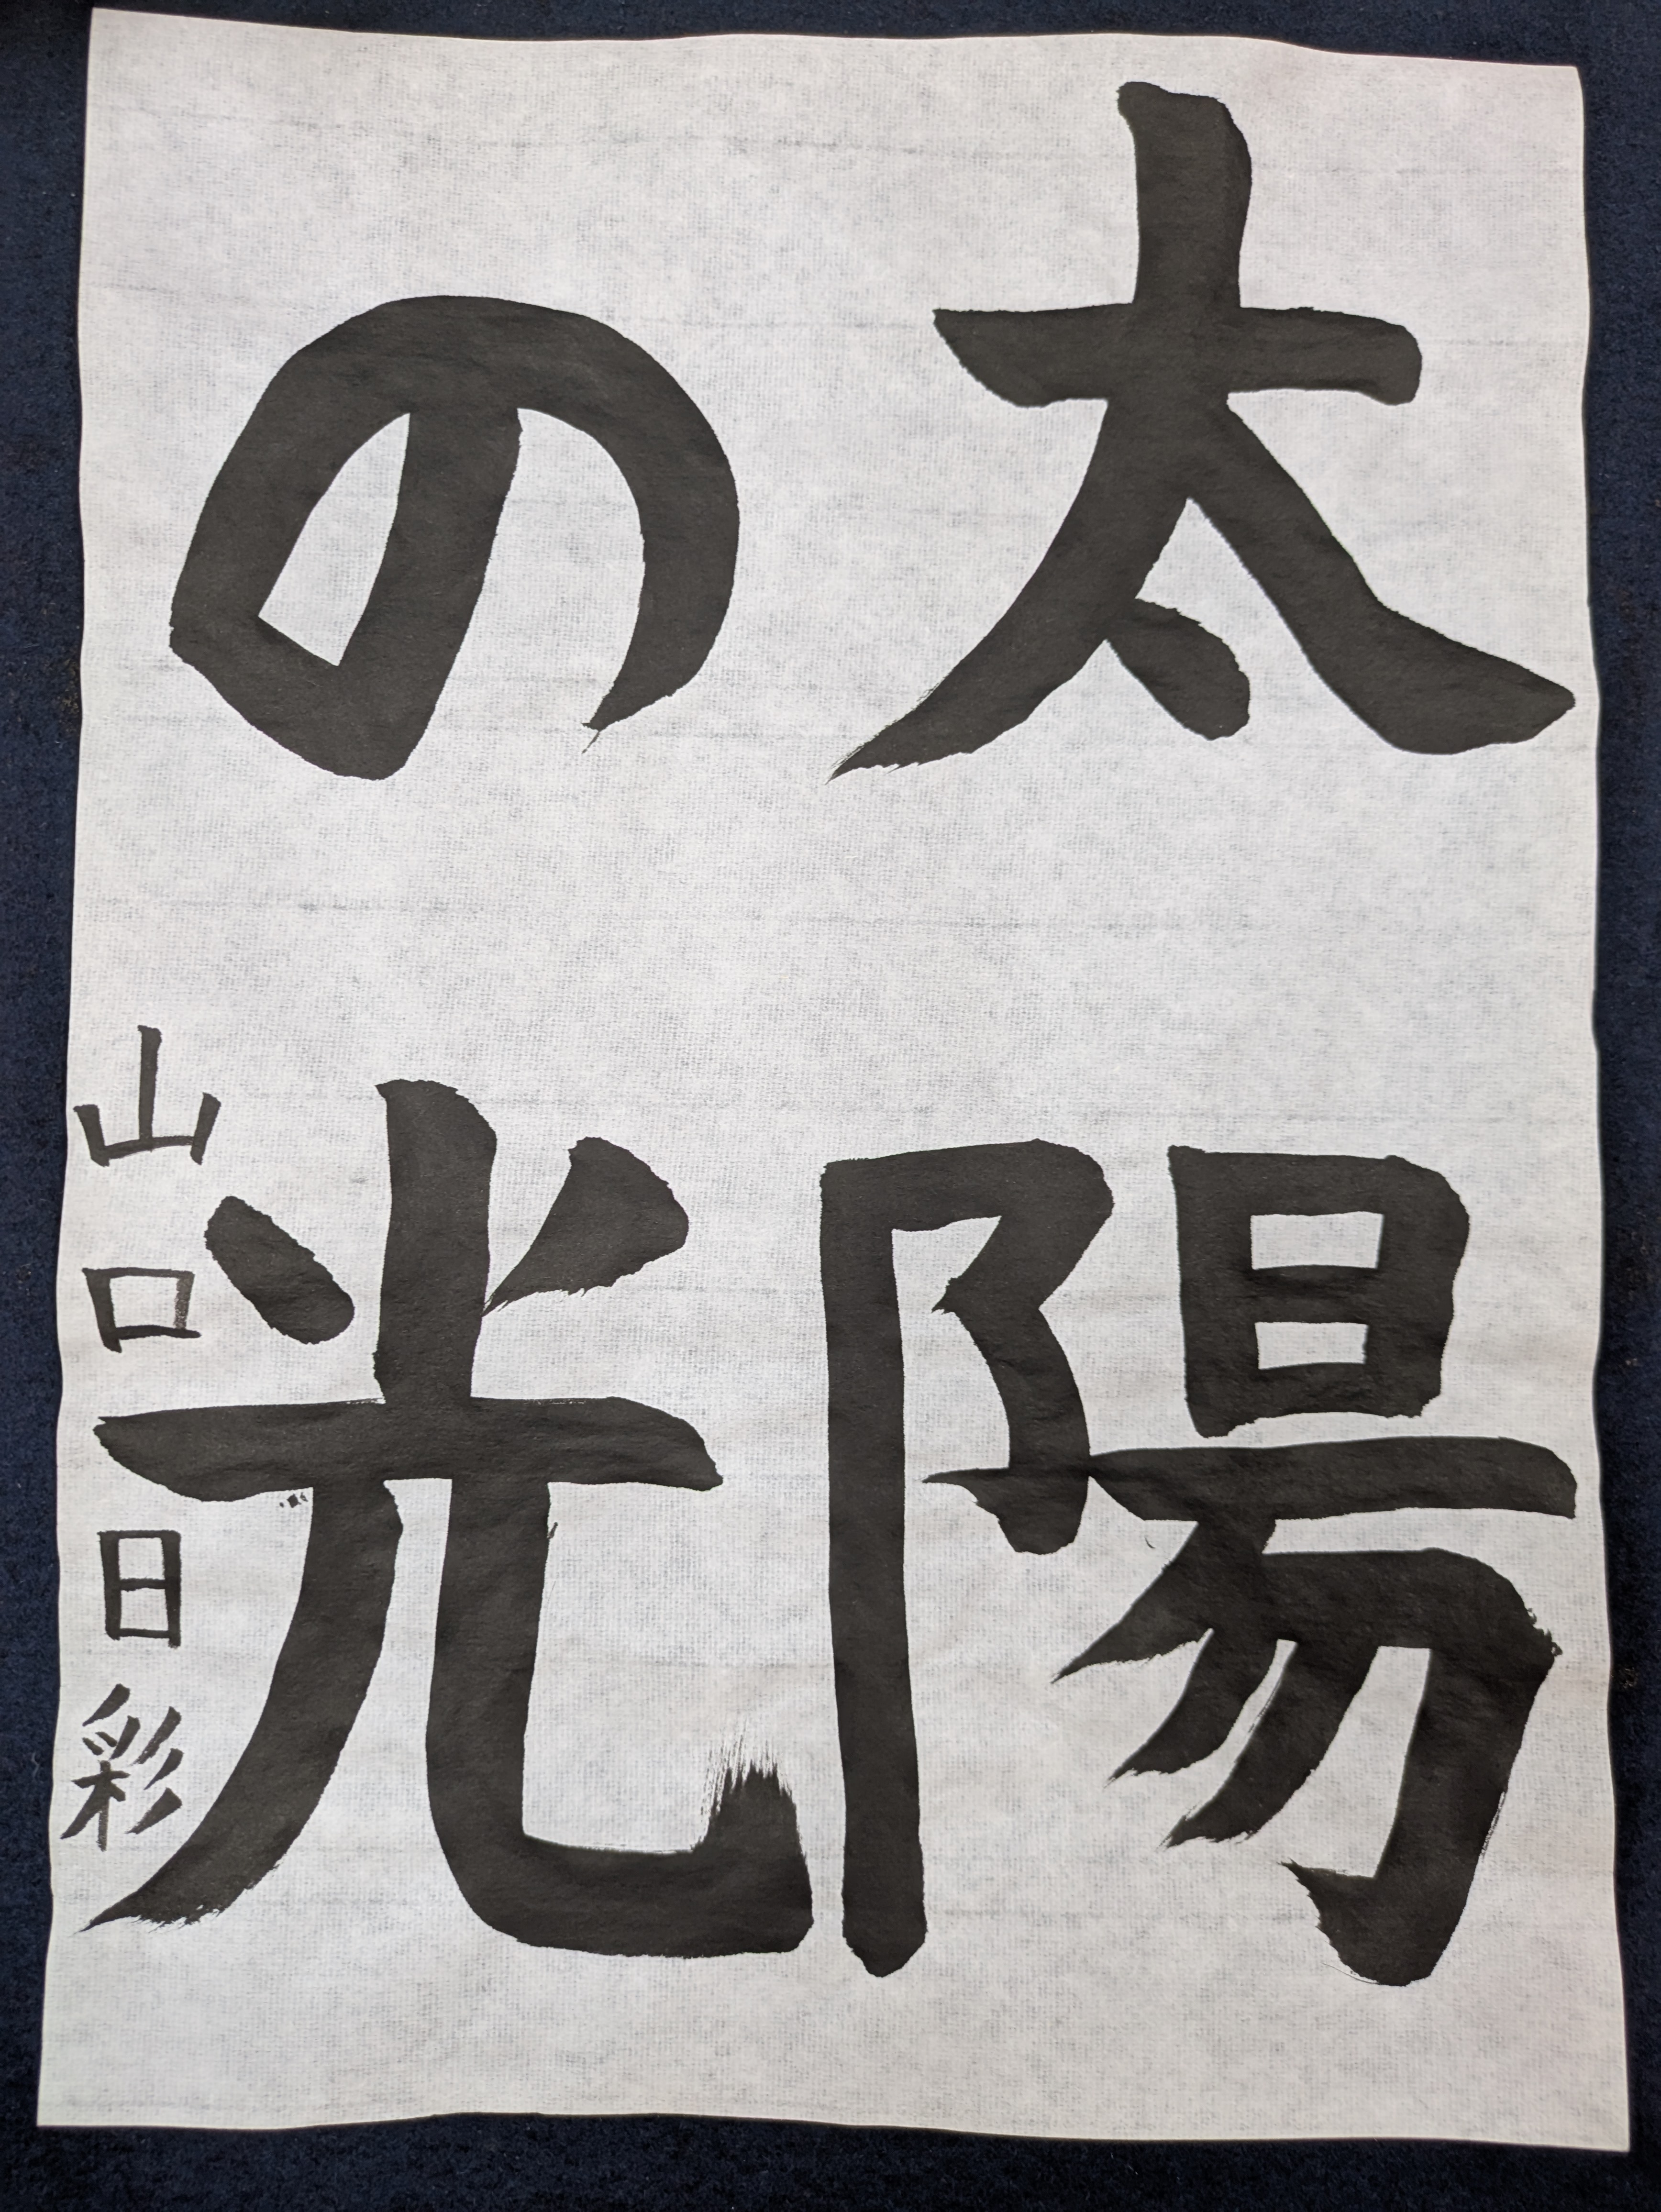 太陽
の光
山口日彩